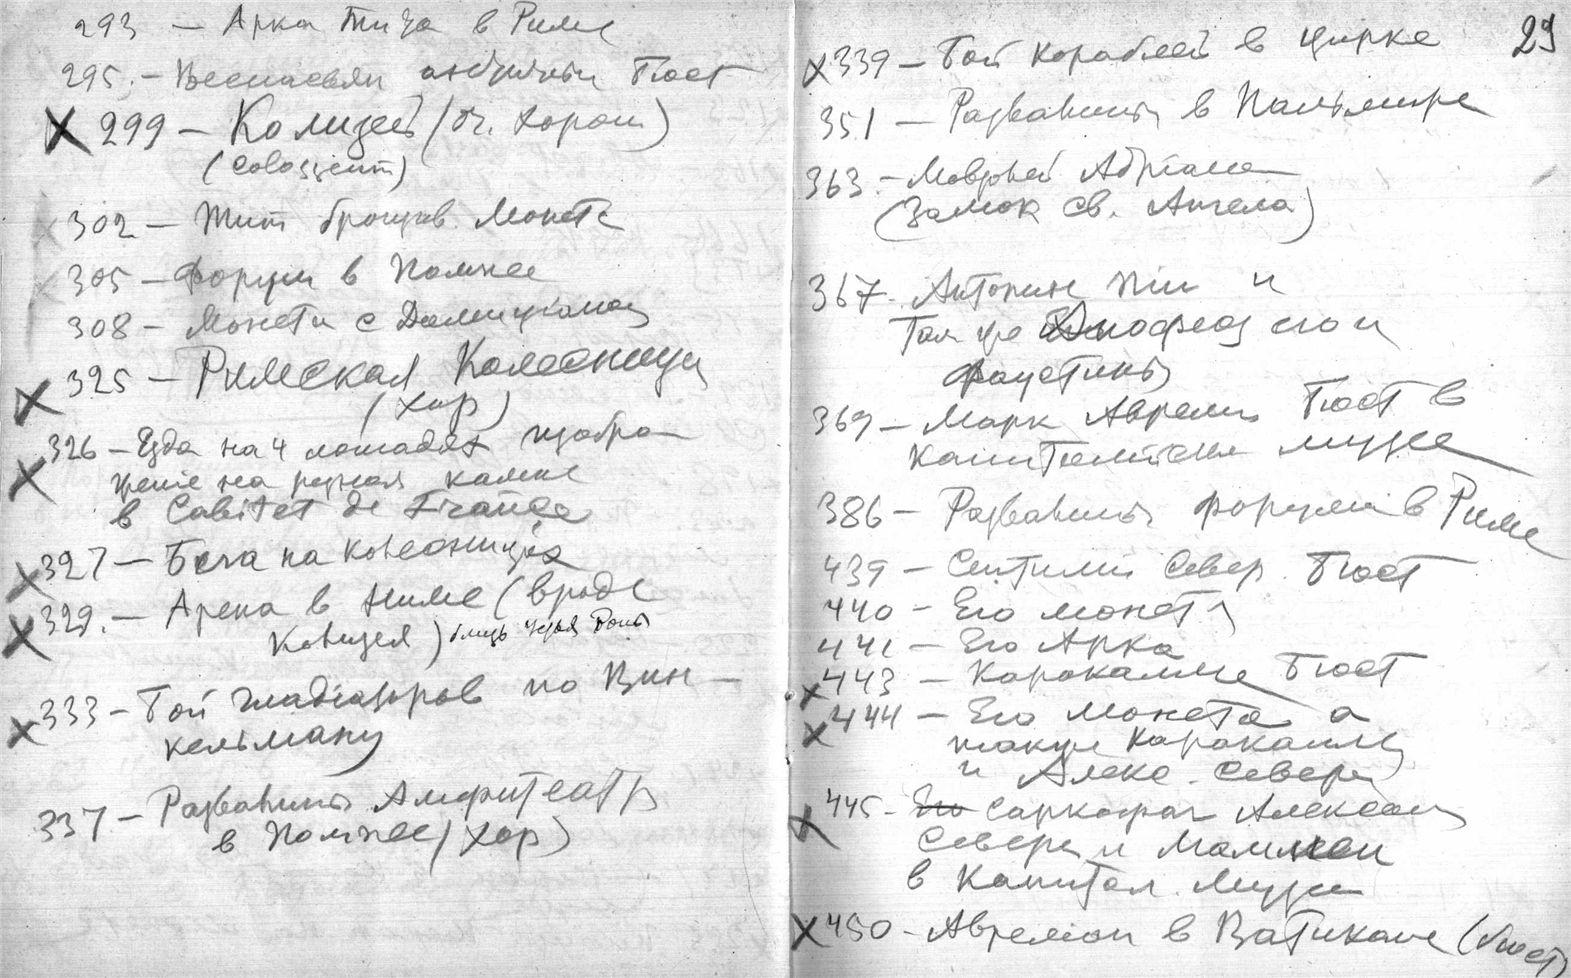 293 — Арка Тита в Риме
295. — Веспасьян античный бюст
X 299 — Колизей (оч. хорош)
(Colosseum)
302 — Тит бронзов. Монета
305 — Форум в Помпее
308 — Монета с Домицианом
X 325 — Римская Колесница
(хор)
X 326 — Езда на 4 лошадях изобра
жение на резном камне
в Cabinet de France
X 327 — Бега на колесницах
X 329. — Арена в Ниме (вроде
Колизея)
X 333 — Бой гладіаторов по Вин —
кельману
337 — Развалины Амфитеатра
в Помпее (хор)
29
X 339 — Бой кораблей в цирке
351 — Развалины в Пальмире
363. — Мавзолей Адріана
(Замок св. Ангела)
367 — Антонин Пій и
Там же Апофеоз его и
Фаустины
369 — Марк Аврелий Бюст в
Капитолийском музее
386 — Развалины форума в Риме
439 — Септимий Север. Бюст
440 — Его монета
441 — Его Арка
X 443 — Каракаллы Бюст
X 444 — Его Монета а
также Каракаллы
и Алекс. Севера
X 445 — Его саркофаг Александра
Севера и Маммеи
в Капитол. Музее
X 450 — Аврелиан в Ватикане (бюст)